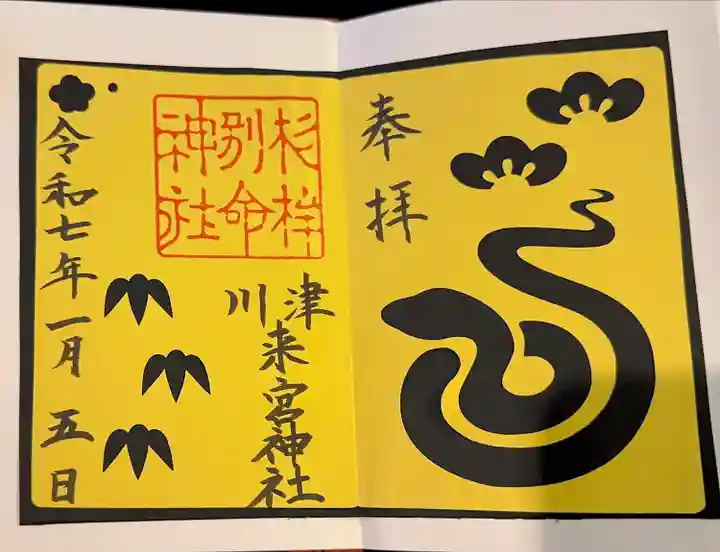 奉拝
杉桙
別命
神社
川津来宮神社
令和七年一月五日